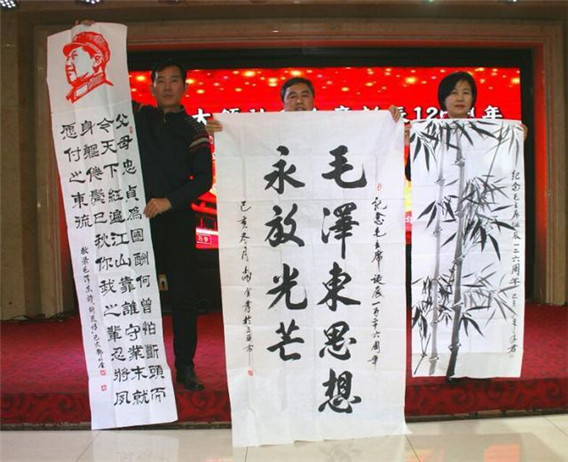 父母忠貞為國酬何曾怕断頭而
今天下紅遍江山靠誰守業未就
身軀倦鬢已秋你我之輩忍將夙
愿付之東流
敬录毛澤東詩訴衷情
記念毛主席誕辰一百二十六周年
毛澤東思想
永放光芒
己亥冬月
紀念毛主席
一二六周年